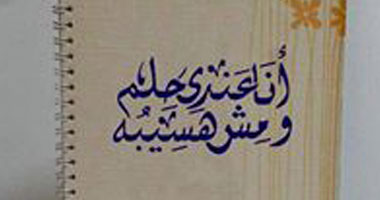 أنا عندي حلم
ومش هسيبه